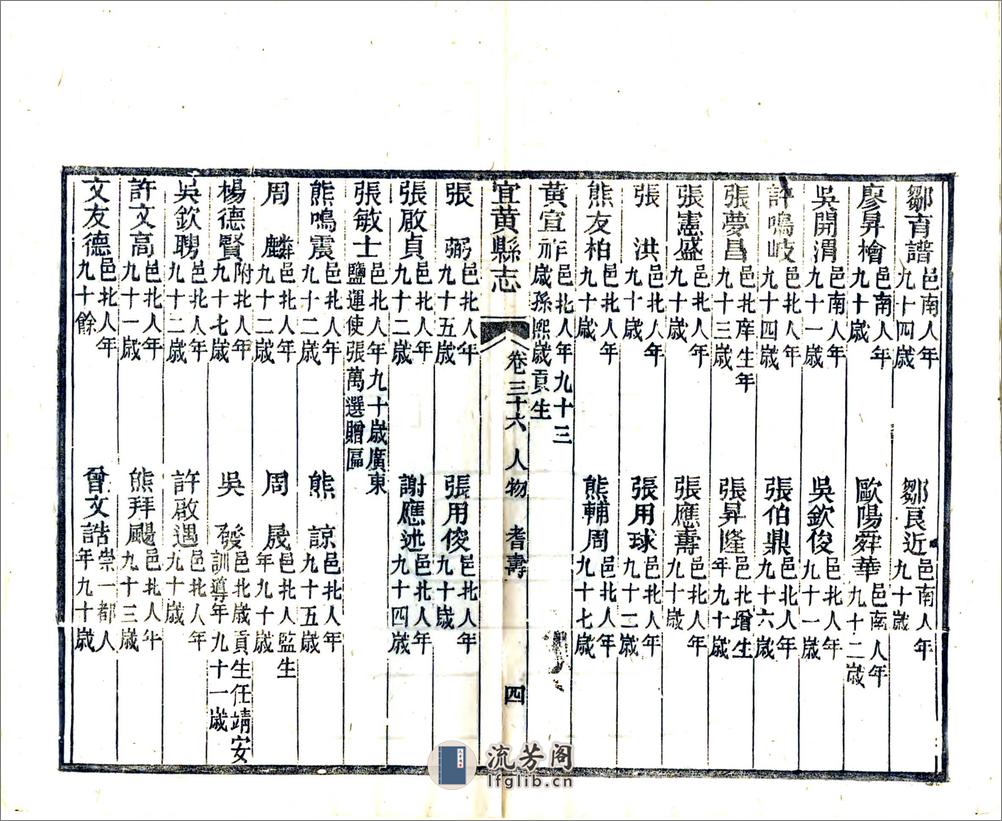 鄒育譜邑南人年九十四歲 鄒良近邑南人年九十歲
廖昇檜邑南人年九十歲 歐陽舜華邑南人年九十二歲
吳開渭邑南人年九十一歲 吳欽俊邑北人年九十一歲
許鳴岐邑北人年九十四歲 張伯鼎邑北人年九十六歲
張夢昌邑北庠生年九十三歲 張昇隆邑北增生年九十歲
張憲盛邑北人年九十歲 張應壽邑北人年九十歲
張洪邑北人年九十歲 張用球邑北人年九十二歲
熊友柏邑北人年九十歲 熊輔周邑北人年九十七歲
黃宜祚邑北人年九十三歲孫熙歲貢生
宜黃縣志 卷三十六 人物 耆壽 四
張弼邑北人年九十五歲 張用俊邑北人年九十歲
張啟貞邑北人年九十二歲 謝應述邑北人年九十四歲
張敏士邑北人年九十歲廣東鹽運使張萬選贈區
熊鳴震邑北人年九十二歲 熊諒邑北人年九十五歲
周麟邑北人年九十二歲 周晟邑北人監生年九十歲
楊德賢邑北人年附九十七歲 吳發邑北歲貢生任靖安訓導年九十一歲
吳欽聘邑北人年九十二歲 許啟遇邑北人年九十歲
許文高邑北人年九十一歲 熊拜颺邑北人年九十三歲
文友德邑北人年九十餘 曾文誥崇一都人年九十歲
流芳阁
lfglib.cn